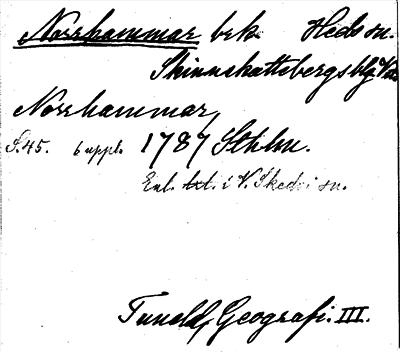 Norrhammar brk. Heds sn.
Skinnskattebergs blg Vm.
Norrhammar,
S.45. 6 uppl. 1787 Sthlm.
Enl. txt. i V. Skedvi sn.
Tuneld, Geografi. III.